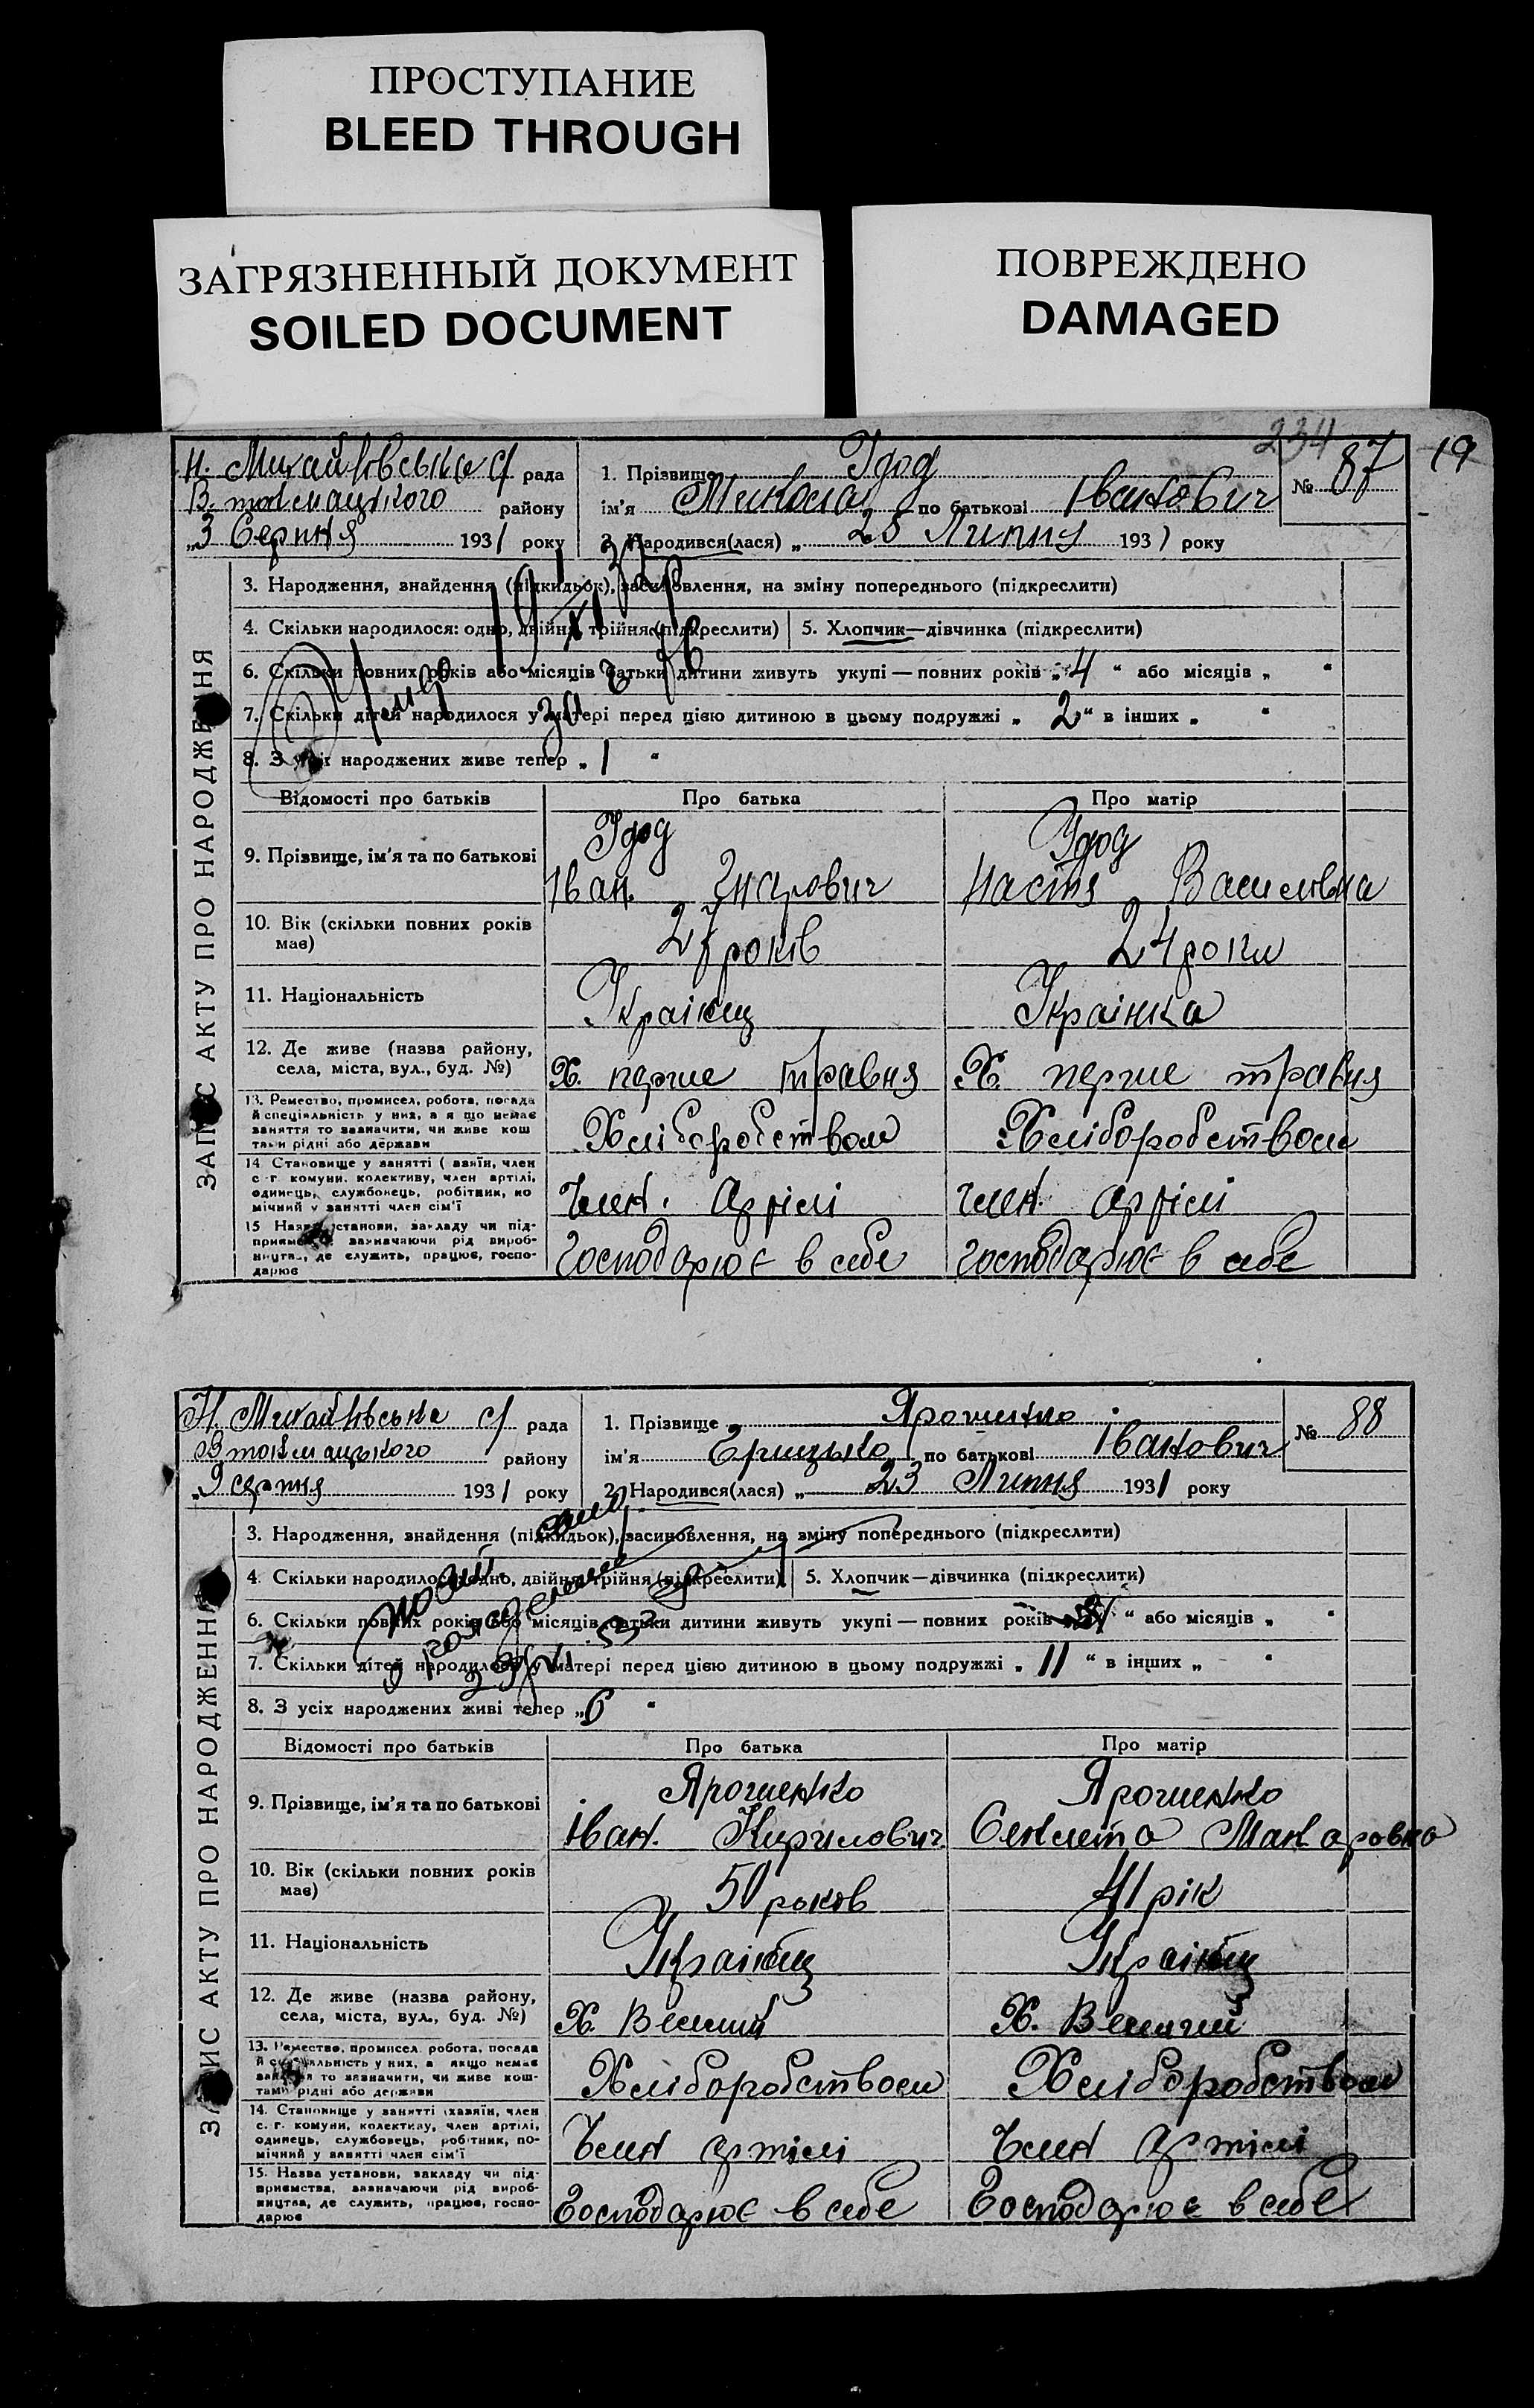 ПРОСТУПАНИЕ
BLEED THROUGH
ЗАГРЯЗНЕННЫЙ ДОКУМЕНТ
SOILED DOCUMENT
ПОВРЕЖДЕНО
DAMAGED
234
19
Н. Михайлівська с/ рада
В. токмацького району
„3 Серпня 1931 року
1. Прізвище Удод
№ 87
ім'я Микола по батькові Іванович
2. Народився(лася) „ 28 Липня 1931 року
ЗАПИС АКТУ ПРО НАРОДЖЕННЯ
3. Народження, знайдення (підкидьок), засиновлення, на зміну попереднього (підкреслити)
4. Скільки народилося: одно, двійня, трійня (підкреслити) 5. Хлопчик—дівчинка (підкреслити)
6. Скільки повних років або місяців батьки дитини живуть укупі — повних років „ 4 “ або місяців „ “
7. Скільки дітей народилося у матері перед цією дитиною в цьому подружжі „ 2 “ в інших „ “
8. З усіх народжених живе тепер „ 1 “
Відомості про батьків Про батька Про матір
9. Прізвище, ім'я та по батькові
Удод
Іван
Удод
Настя Василівна
10. Вік (скільки повних років має)
27 років
24 роки
11. Національність
Українець
Українка
12. Де живе (назва району, села, міста, вул., буд. №)
Х. перше травня
Х. перше травня
13. Ремество, промисел, робота, посада й спеціяльність у них, а я що немає заняття то зазначити, чи живе кош тами рідні або держави
Хліборобством
Хліборобством
14. Становище у занятті (хазяїн, член с.-г. комуни, колективу, член артілі, одинець, службовець, робітник, по мічний у занятті член сім'ї
Член. артілі
член. артілі
15 Назва установи, закладу чи під- приємства, зазначаючи рід вироб- ництва, де служить, працює, госпо- дарює
Господарює в себе
господарює в себе
Н. Михайлівська с/ рада
В токмацького району
„9 серпня 1931 року
1. Прізвище Ярошенко
№ 88
ім'я Грицько по батькові Іванович
2. Народився(лася) „ 23 Липня 1931 року
ЗАПИС АКТУ ПРО НАРОДЖЕННЯ
3. Народження, знайдення (підкидьок), засиновлення, на зміну попереднього (підкреслити)
4. Скільки народилося: одно, двійня, трійня (підкреслити) 5. Хлопчик—дівчинка (підкреслити)
6. Скільки повних років або місяців батьки дитини живуть укупі — повних років „ “ або місяців „ “
7. Скільки дітей народилося у матері перед цією дитиною в цьому подружжі „ 11 “ в інших „ “
8. З усіх народжених живі тепер „ 6 “
Відомості про батьків Про батька Про матір
9. Прізвище, ім'я та по батькові
Ярошенко
Іван. Кирилович
Ярошенко
Макаровна
10. Вік (скільки повних років має)
50 роков
41 рік
11. Національність
Українец
Українец
12. Де живе (назва району, села, міста, вул., буд. №)
Х.
Х.
13. Ремество, промисел, робота, посада й спеціяльність у них, а якщо немає заняття то зазначити, чи живе кош- тами рідні або держави
Хліборобством
Хліборобством
14. Становище у занятті (хазяїн, член с. г. комуни, колективу, член артілі, одинець, службовець, робітник, по- мічний у занятті член сім'ї
Член артілі
Член артілі
15. Назва установи, закладу чи під- приємства, зазначаючи рід вироб- ництва, де служить, працює, госпо- дарює
Господарює в себе
Господарює в себе